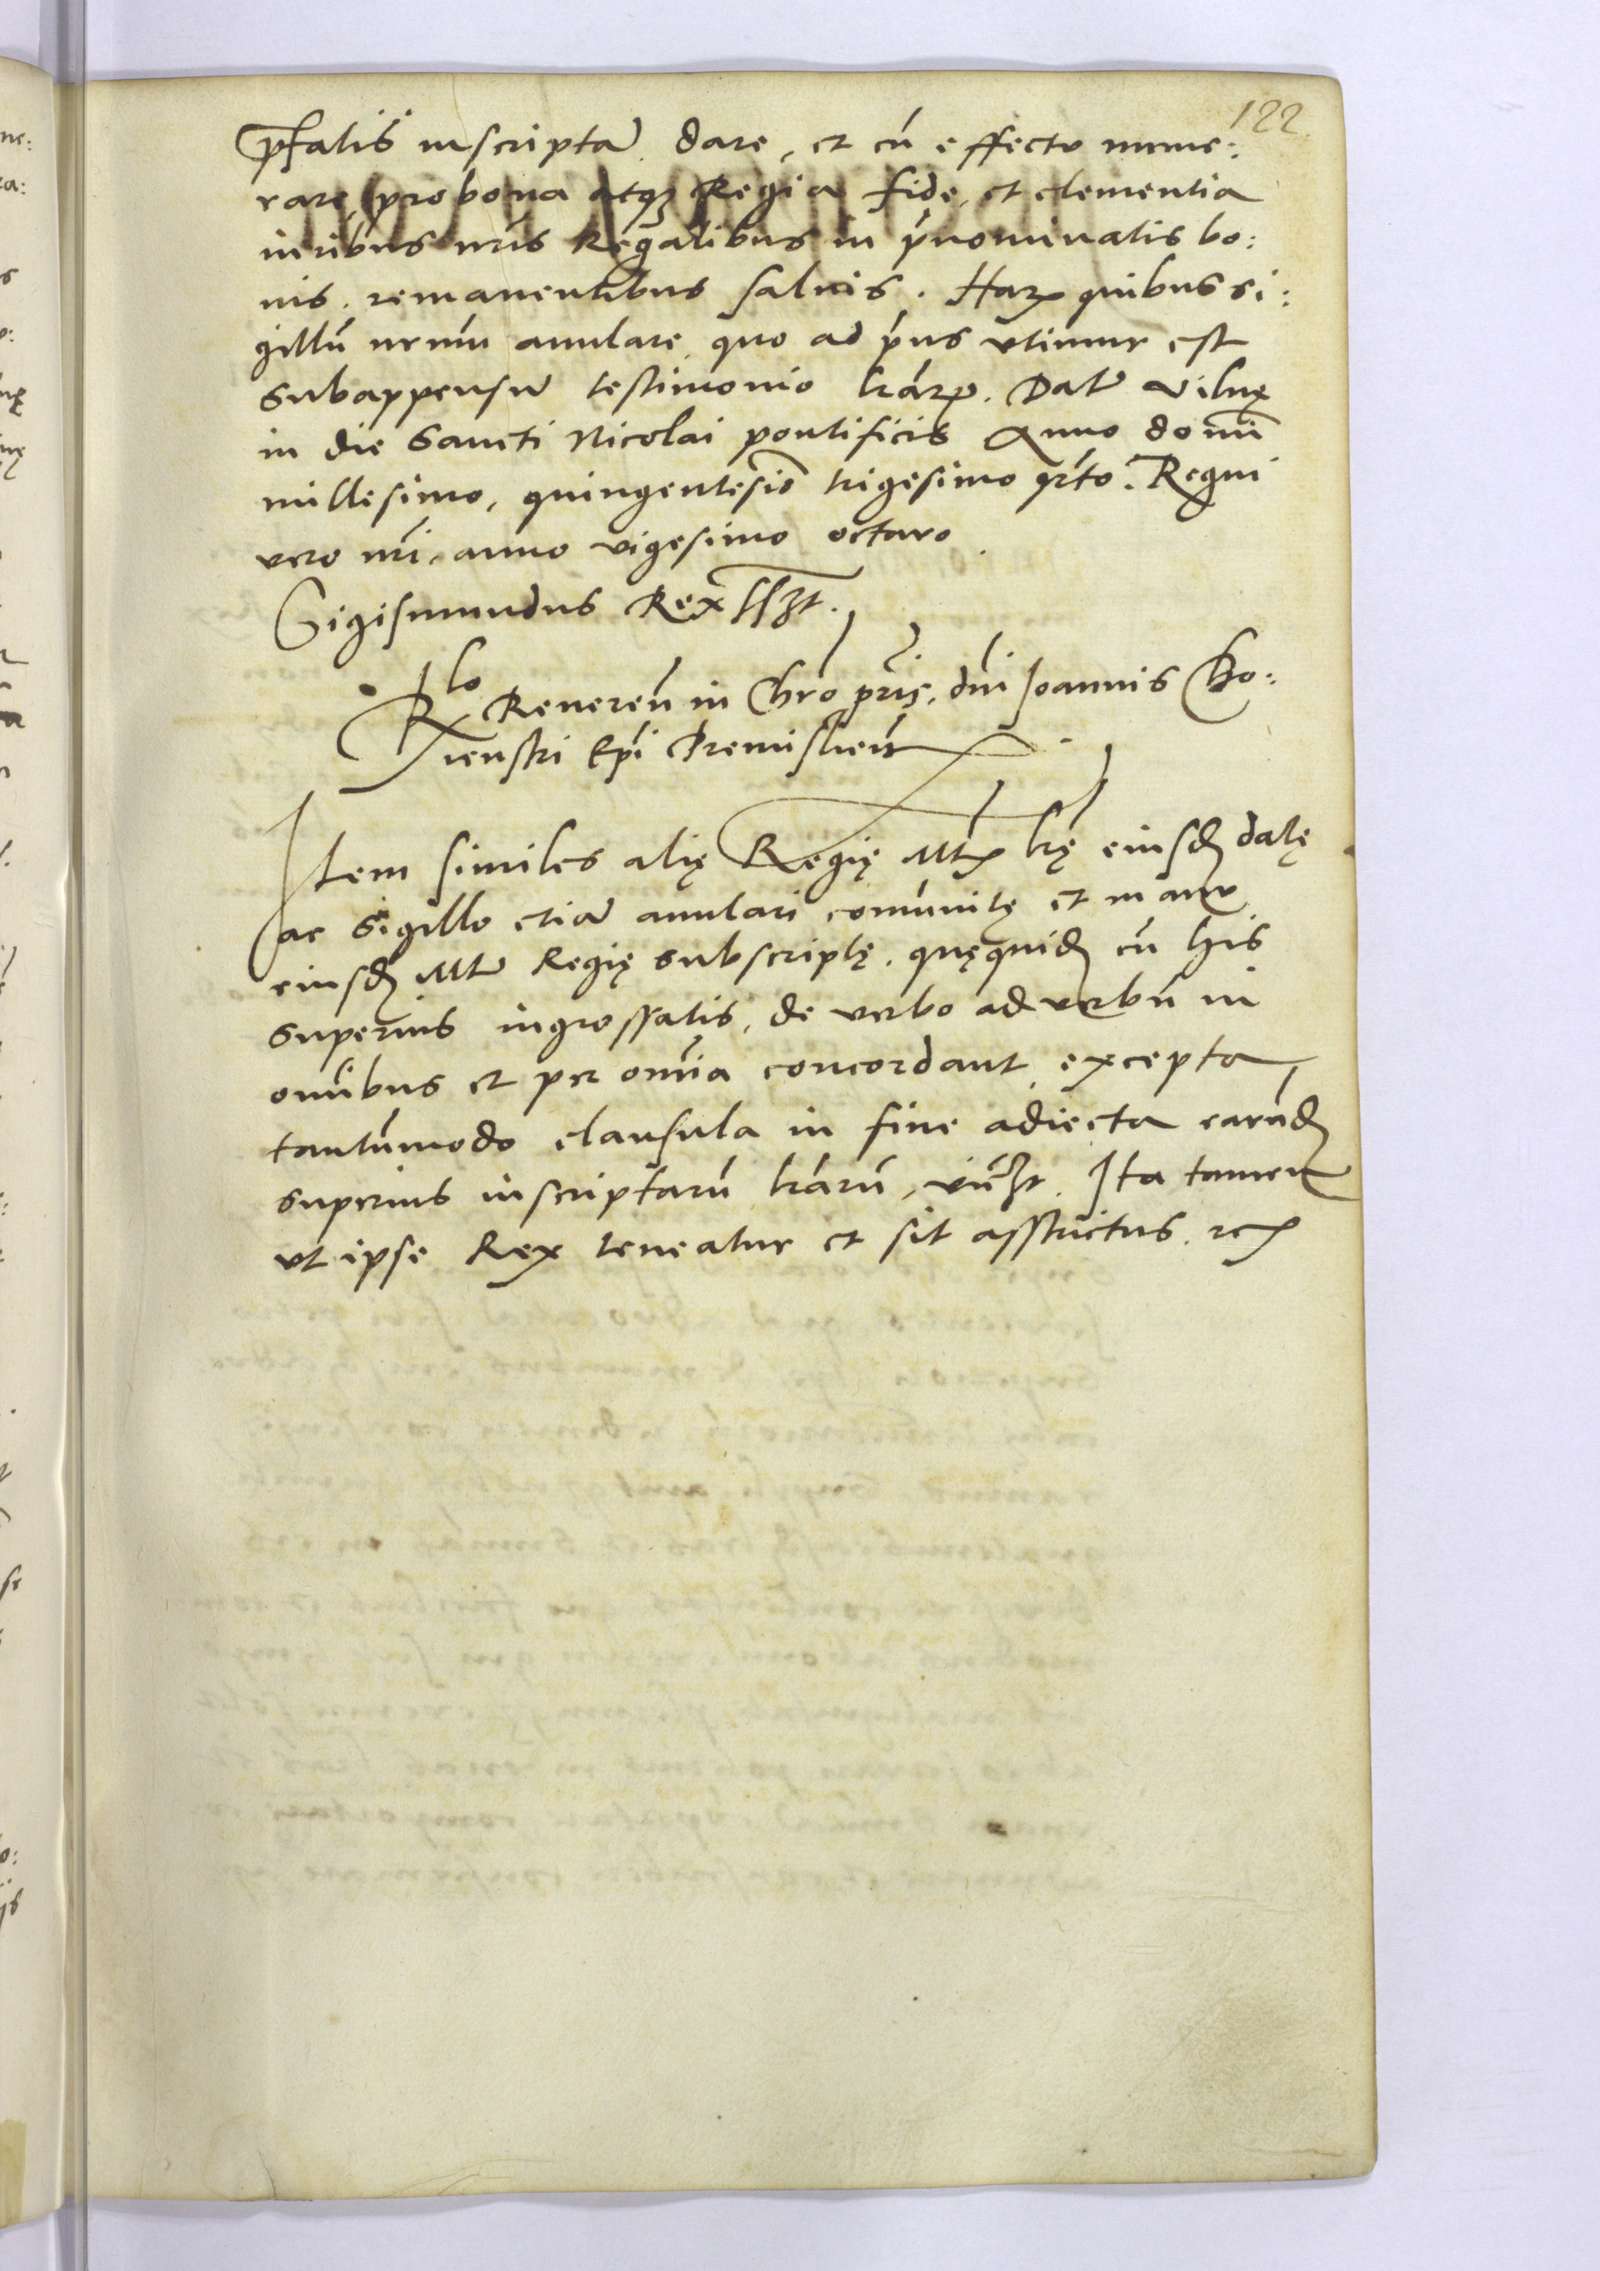 122
p̱fatis inscriptã dare, et cũ effectu nume:
rare, pro bona atq̃ Regia fide, et clementia
iuribus nr̃is Regalibus in p̃nominatis bo:
nis. remanentibus saluis. Harꝝ quibus si:
gillũ nr̃um anulare, quo ad p̃ns vtimur est
subappensũ testimonio lr̃arꝝ. Datũ vilnę
in die Sancti Nicolai pontificis Anno domĩ
millesimo, quingentesiõ trigesimo qr̃to. Regni
vero nr̃i, anno vigesimo octauo.
Sigismundus Rex sszt.
Rlo Reuereñ in Chr̃o pr̃is, dñi Ioannis Cho:
ienski Ep̃i Premislieñ
Item similes alię Regię Mtꝭ lr̃ę eiusđ datę
ac sigillo etiã anulari com̃unitę et manu
eiusđ Mtis Regię subscriptę. quęquiđ cũ his
superius ingrossatis, de verbo ad verbũ in
om̃ibus et per om̃ia concordant, excepta
tantũmodo clausula in fine adiecta earũđ
superius inscriptarũ lr̃arũ, vñzt. Ita tamen
vt ipse Rex teneatur et sit asstrictus. rcꝭ